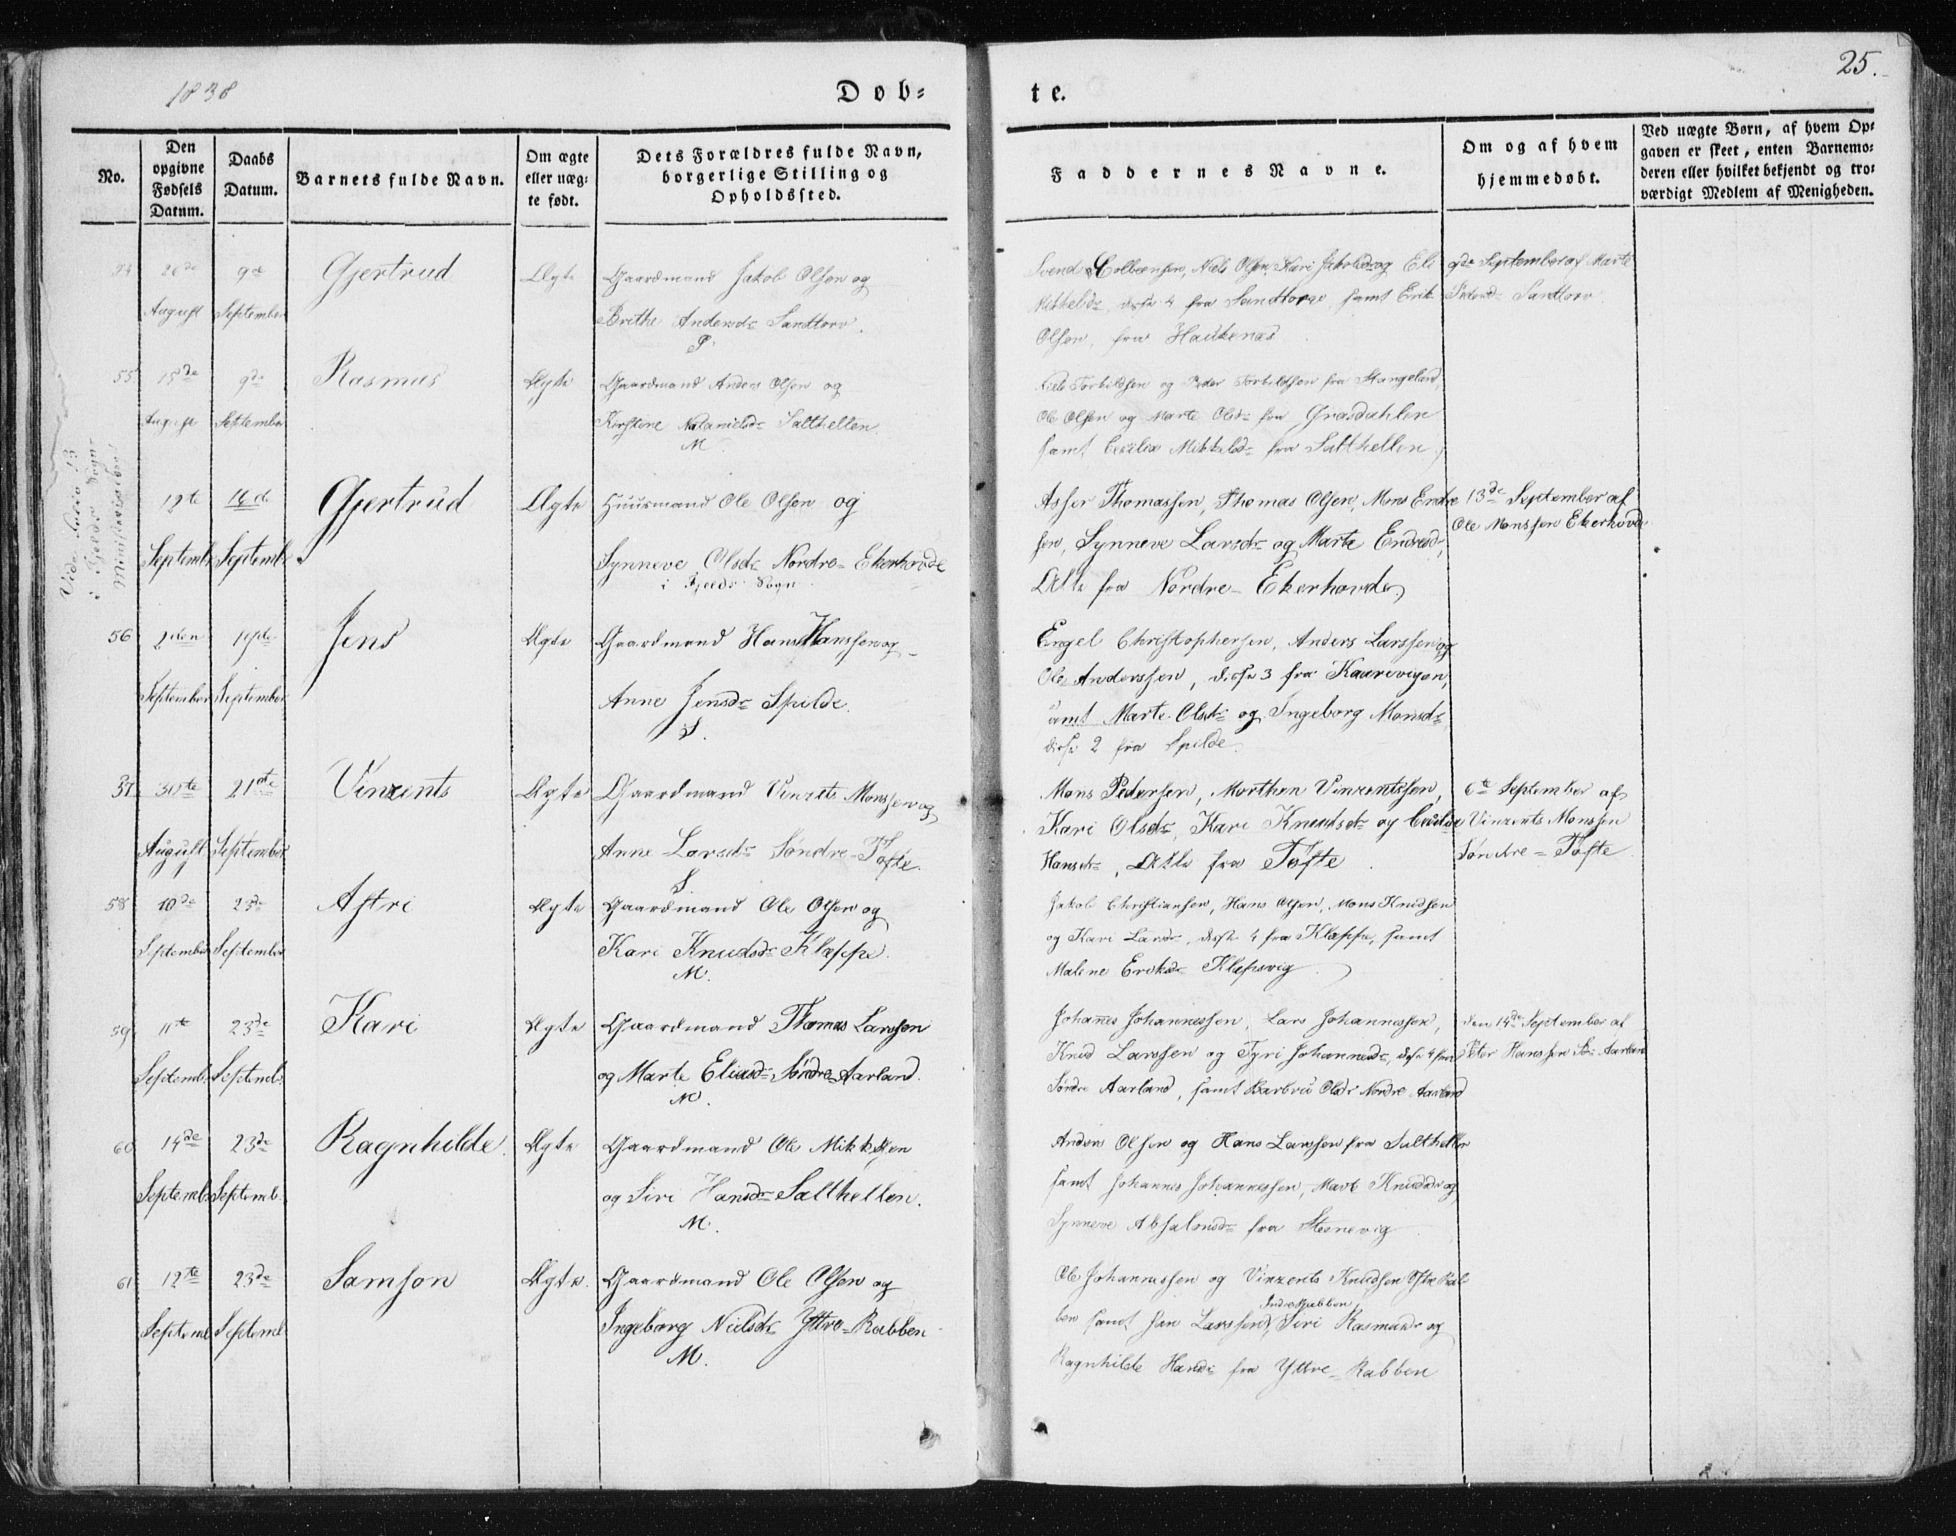 1838
Døb-
te.
25.
No.
Den opgivne Fødsels Datum.
Daabs Datum.
Barnets fulde Navn.
Om ægte eller uægte født.
Dets Forældres fulde Navn, borgerlige Stilling og Opholdssted.
Faddernes Navne.
Om og af hvem hjemmedøbt.
Ved uægte Børn, af hvem Opgaven er skeet, enten Barnemoderen eller hvilket bekjendt og troværdigt Medlem af Menigheden.
26de August
9de September
Gjertrud
Ægte
Gaardmand Jakob Olsen og
Brithe Andersdr Sandtorv.
P.
Niels Olsen, Kari Jakobsdr og Eli
disse 4 fra Sandtorv, samt Erik
Olsen, fra Haukenæs
9de September af Marte
Pedersdr Sandtorv
55
15de August
9de September
Rasmus
Ægte
Gaardmand Anders Olsen og
Kirstine Natanielsdr Salthellen.
M.
Niels Torkildsen og Peder Torkildsen fra Stangeland,
Ole Olsen og Marte Olsdr fra Grasdahlen
samt Cecilia Mikkelsdr fra Salthellen.
Vide Folio 13
i Fjelds Sogn
12te September
16de September
Gjertrud
Ægte
Huusmand Ole Olsen og
Synneve Olsdr Nordre-Ekerhovde
i Fjelds Sogn
Asser Thomassen, Thomas Olsen, Mons Endre
sen, Synneve Larsdr og Marte Endresdr,
Alle fra Nordre-Ekerhovde.
13de September af
Ole Monssen Ekerhovde
56
2den September
September
Jens
Ægte
Gaardmand Hans Hanssen og
Anne Jensdr Spilde.
S.
Engel Christophersen, Anders Larssen og
Ole Anderssen, disse 3 fra Kaarevigen,
samt Marte Olsdr og Ingeborg Monsdr
disse 2 fra Spilde.
57
30te August
21de September
Vinzents
Ægte
Gaardmand Vinzents Monssen og
Anne Larsdr Søndre-Tøfte.
S.
Mons Pedersen, Morthen Vinzentssen,
Kari Olsdr, Kari Knudsdr og Cecilia
Hansdr, Alle fra Tøfte
6te September af
Vinzents Monssen
Søndre-Tøfte
58
10de September
23de September
Astri
Ægte
Gaardmand Ole Olsen og
Kari Knudsdr Klæppe.
M.
Jakob Christiansen, Hans Olsen, Mons Knudsen
og Kari Larsdr, disse 4 fra Klæppe, samt
Malene Eriksdr Klæpsvig
59
11te Septemb.
23de Septemb.
Kari
Ægte
Gaardmand Thomas Larssen
og Marte Eliasdr Søndre-Aarland.
M.
Johannes Johannessen, Lars Johannessen,
Knud Larssen og Tyri Johannesdr, disse 4 fra
Søndre Aarland, samt Barbru Olsdr Nordre Aarland
den 14de September af
Peter Hanssen Sø-Aarland
60
14de Septemb.
23de Septemb.
Ragnhilde.
Ægte
Gaardmand Ole Mikkelsen
og Siri Hansdr Salthellen.
M.
Anders Olsen og Hans Larssen fra Salthellen
samt Johannes Johannessen, Marte Knudsdr og
Synneve Absalonsdr fra Steinevig
61
12te Septemb
23de Septemb
Samson
Ægte.
Gaardmand Ole Olsen og
Ingeborg Nielsdr Yttre-Rabben
M.
Ole Johannessen og Vinzents Knudsen Østre Rab-
Indre Rabben
ben samt Jan Larssen, Siri Rasmusdr og
Ragnhilde Hansdr fra Yttre-Rabben